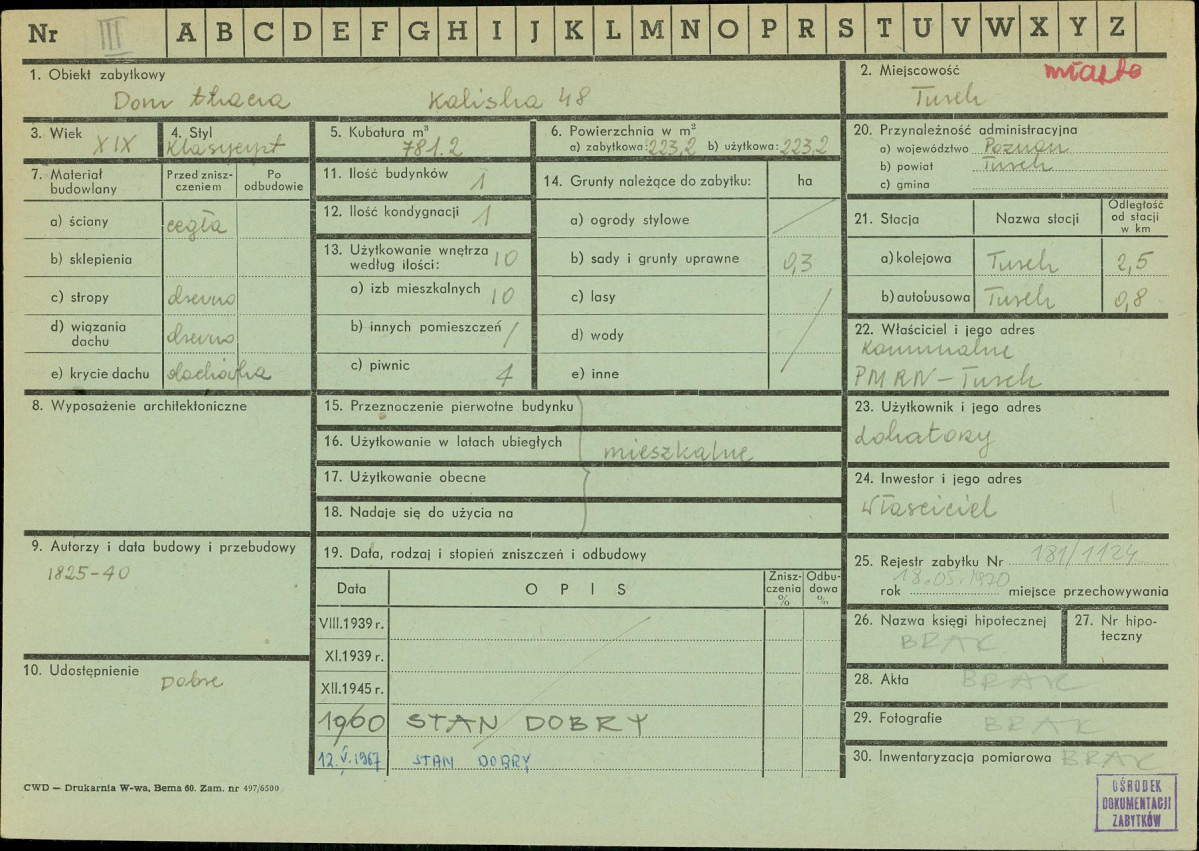 Nr III A B C D E F G H I J K L M N O P R S T U V W X Y Z
1. Obiekt zabytkowy
Dom tkacza Kaliska 48
2. Miejscowość miasto
Turek
3. Wiek XIX
4. Styl
5. Kubatura m³
781.2
6. Powierzchnia w m²
a) zabytkowa: 223,2 b) użytkowa: 223,2
20. Przynależność administracyjna
a) województwo Poznań
b) powiat Turek
c) gmina
7. Materiał budowlany
Przed znisz-
czeniem
Po
odbudowie
a) ściany cegła
b) sklepienia
c) stropy drewno
d) wiązania
dachu drewno
e) krycie dachu dachówka
11. Ilość budynków 1
12. Ilość kondygnacji 1
13. Użytkowanie wnętrza
według ilości: 10
a) izb mieszkalnych 10
b) innych pomieszczeń /
c) piwnic 4
14. Grunty należące do zabytku: ha
a) ogrody stylowe
b) sady i grunty uprawne 0,3
c) lasy
d) wody
e) inne
21. Stacja Nazwa stacji
Odległość
od stacji
w km
a) kolejowa Turek 2,5
b) autobusowa Turek 0,8
22. Właściciel i jego adres
Komunalne
PMRN – Turek
8. Wyposażenie architektoniczne
15. Przeznaczenie pierwotne budynku
16. Użytkowanie w latach ubiegłych
mieszkalne
17. Użytkowanie obecne
18. Nadaje się do użycia na
23. Użytkownik i jego adres
lokatorzy
24. Inwestor i jego adres
właściciel
9. Autorzy i data budowy i przebudowy
1825-40
19. Data, rodzaj i stopień zniszczeń i odbudowy
Data OPIS
Znisz-
czenia
%
Odbu-
dowa
%
VIII.1939 r.
XI.1939 r.
XII.1945 r.
1960 STAN DOBRY
12.V.1967 STAN DOBRY
25. Rejestr zabytku Nr 181/1124
18.05.1970
rok miejsce przechowywania
26. Nazwa księgi hipotecznej
BRAK
27. Nr hipo-
teczny
10. Udostępnienie
Dobre
28. Akta BRAK
29. Fotografie BRAK
30. Inwentaryzacja pomiarowa BRAK
CWD — Drukarnia W-wa, Bema 60. Zam. nr 497/6500
OŚRODEK
DOKUMENTACJI
ZABYTKÓW